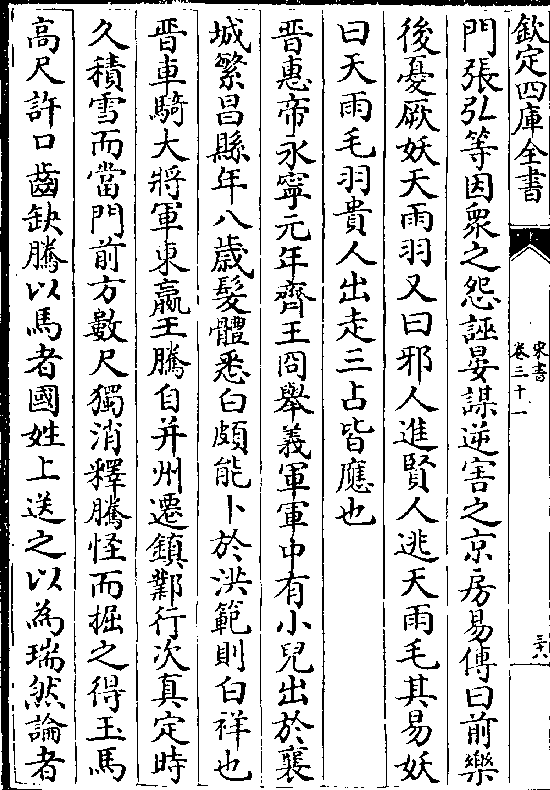 欽定四庫全書
宋書
卷三十一
三六
門張弘等因衆之怨誣晏謀逆害之京房易傳曰前樂
後憂厥妖天雨羽又曰邪人進賢人逃天雨毛其易妖
曰天雨毛羽貴人出走三占皆應也
晉惠帝永寧元年齊王冏舉義軍軍中有小兒出於襄
城繁昌縣年八歲髮體悉白頗能卜於洪範則白祥也
晉車騎大將軍東嬴王騰自并州遷鎮鄴行次真定時
久積雪而當門前方數尺獨消釋騰怪而掘之得玉馬
高尺許口齒缺騰以馬者國姓上送之以為瑞然論者